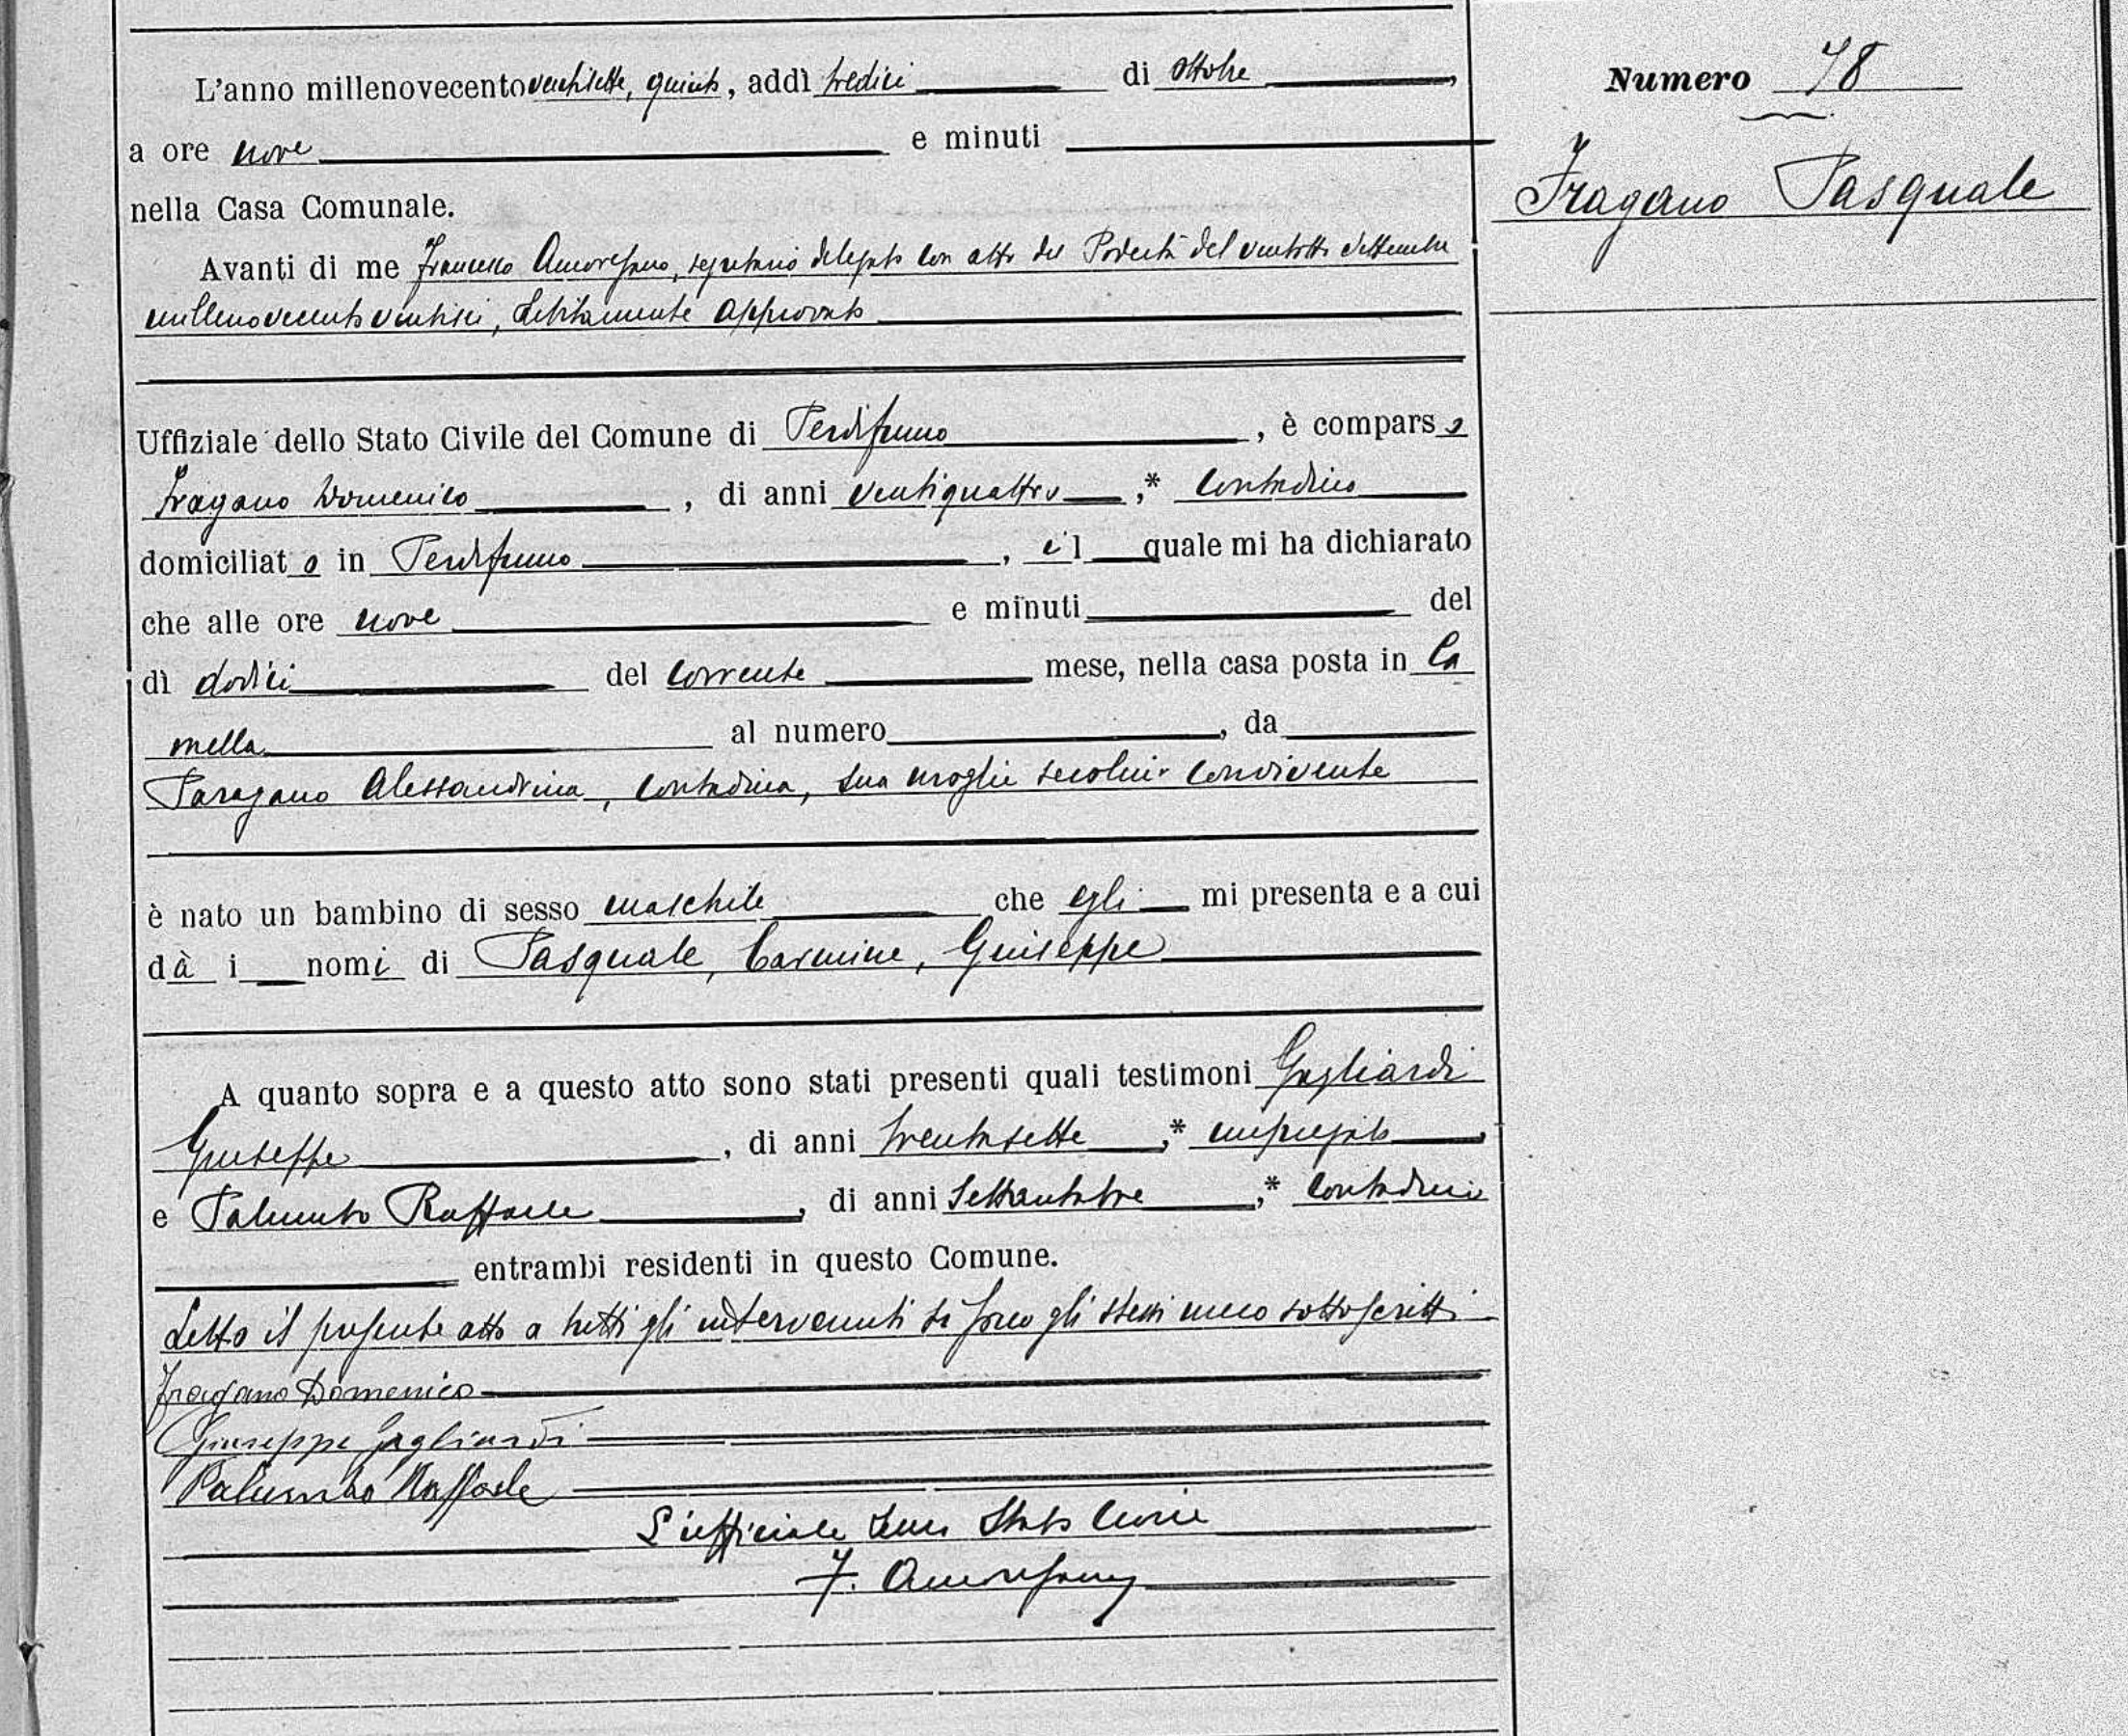 Numero 78
Fragano Pasquale
L'anno millenovecentoventisette, quinto, addì tredici di Ottobre,
a ore nove e minuti
nella Casa Comunale.
Avanti di me Francesco Amoresano, segretario delegato con atto del Podestà del ventotto Settembre
millenovecentoventisei, debitamente approvato
Uffiziale dello Stato Civile del Comune di Perdifumo, è comparso
Fragano Domenico, di anni ventiquattro,* contadino
domiciliato in Perdifumo, il quale mi ha dichiarato
che alle ore nove e minuti del
dì dodici del corrente mese, nella casa posta in Ca
mella al numero, da
Paragano Alessandrina, contadina, sua moglie seco lui convivente
è nato un bambino di sesso maschile che egli mi presenta e a cui
dà i nomi di Pasquale, Carmine, Giuseppe
A quanto sopra e a questo atto sono stati presenti quali testimoni Gagliardi
Giuseppe, di anni trentasette,* impiegato,
e Palumbo Raffaele, di anni Settantatre,* contadino
entrambi residenti in questo Comune.
Letto il presente atto a tutti gli intervenuti si sono gli stessi meco sottoscritti
Fragano Domenico
Giuseppe Gagliardi
Palumbo Raffaele
L'ufficiale dello Stato Civile
F. Amoresano